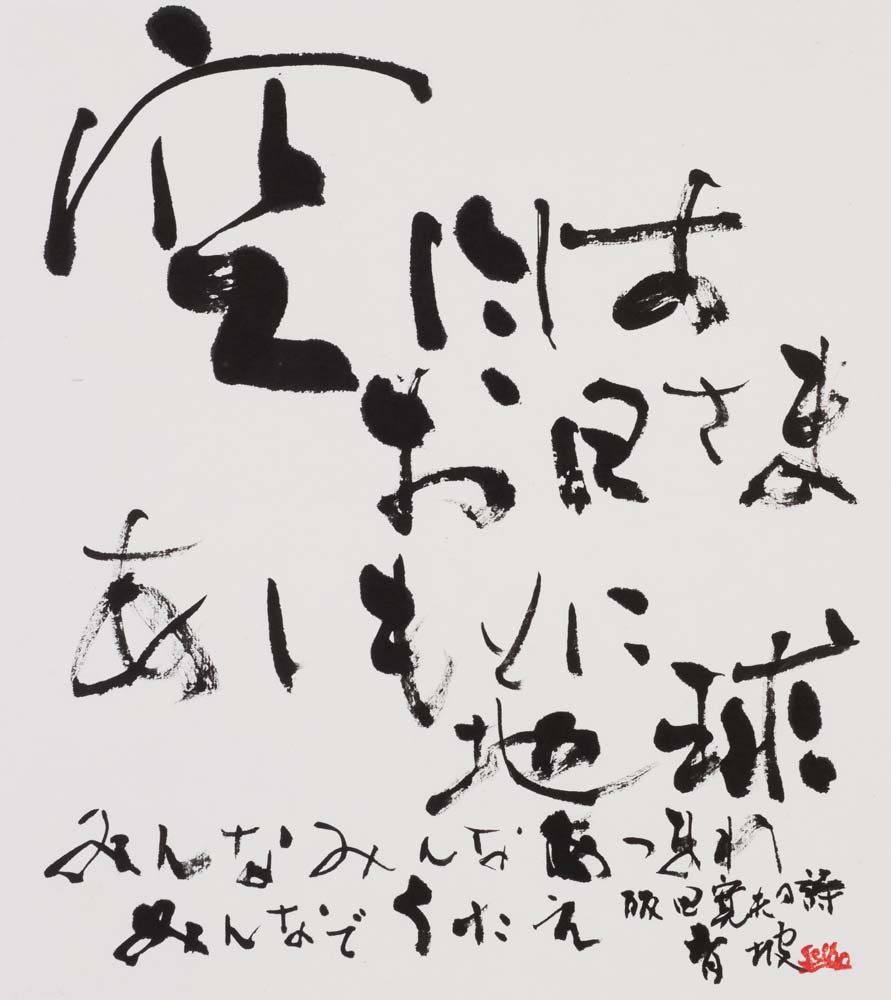 空には
お日さま
あしもとに
地球
みんなみんなあつまれ
みんなでうたえ
阪田寛夫の詩
青坡
Seiha